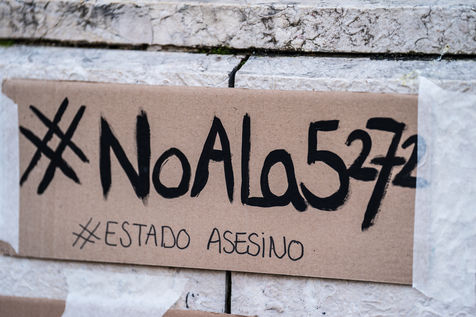 #NoALa5272
#ESTADO ASESINO